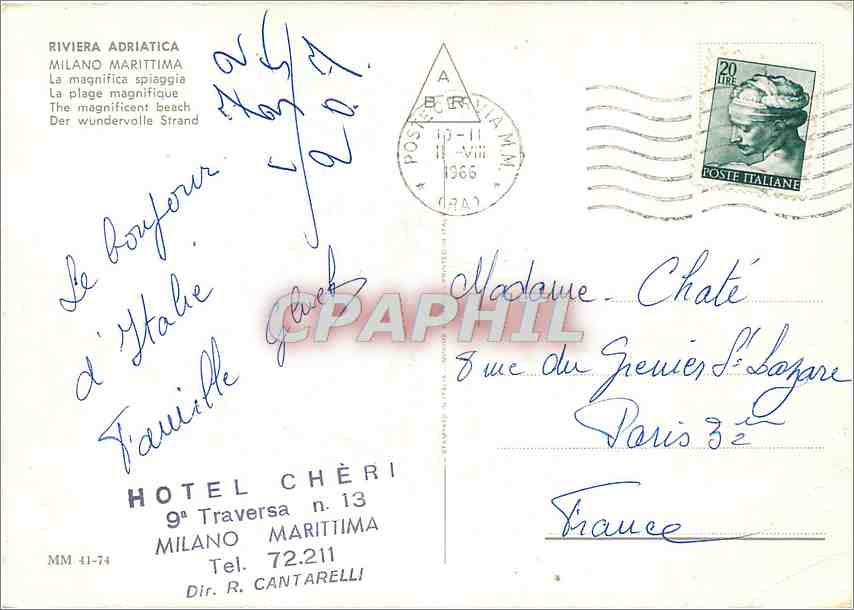 RIVIERA ADRIATICA
MILANO MARITTIMA
La magnifica spiaggia
La plage magnifique
The magnificent beach
Der wundervolle Strand
Le bonjour
d'Italie
Famille
HOTEL CHÈRI
9ª Traversa n. 13
MILANO MARITTIMA
Tel. 72.211
Dir. R. CANTARELLI
MM 41-74
A
B R
POSTE CERVIA M.M.
10-11
VIII
1966
(RA)
20
LIRE
POSTE ITALIANE
CPAPHIL
Madame Chaté
8 rue du Grenier St Lazare
Paris 3
France